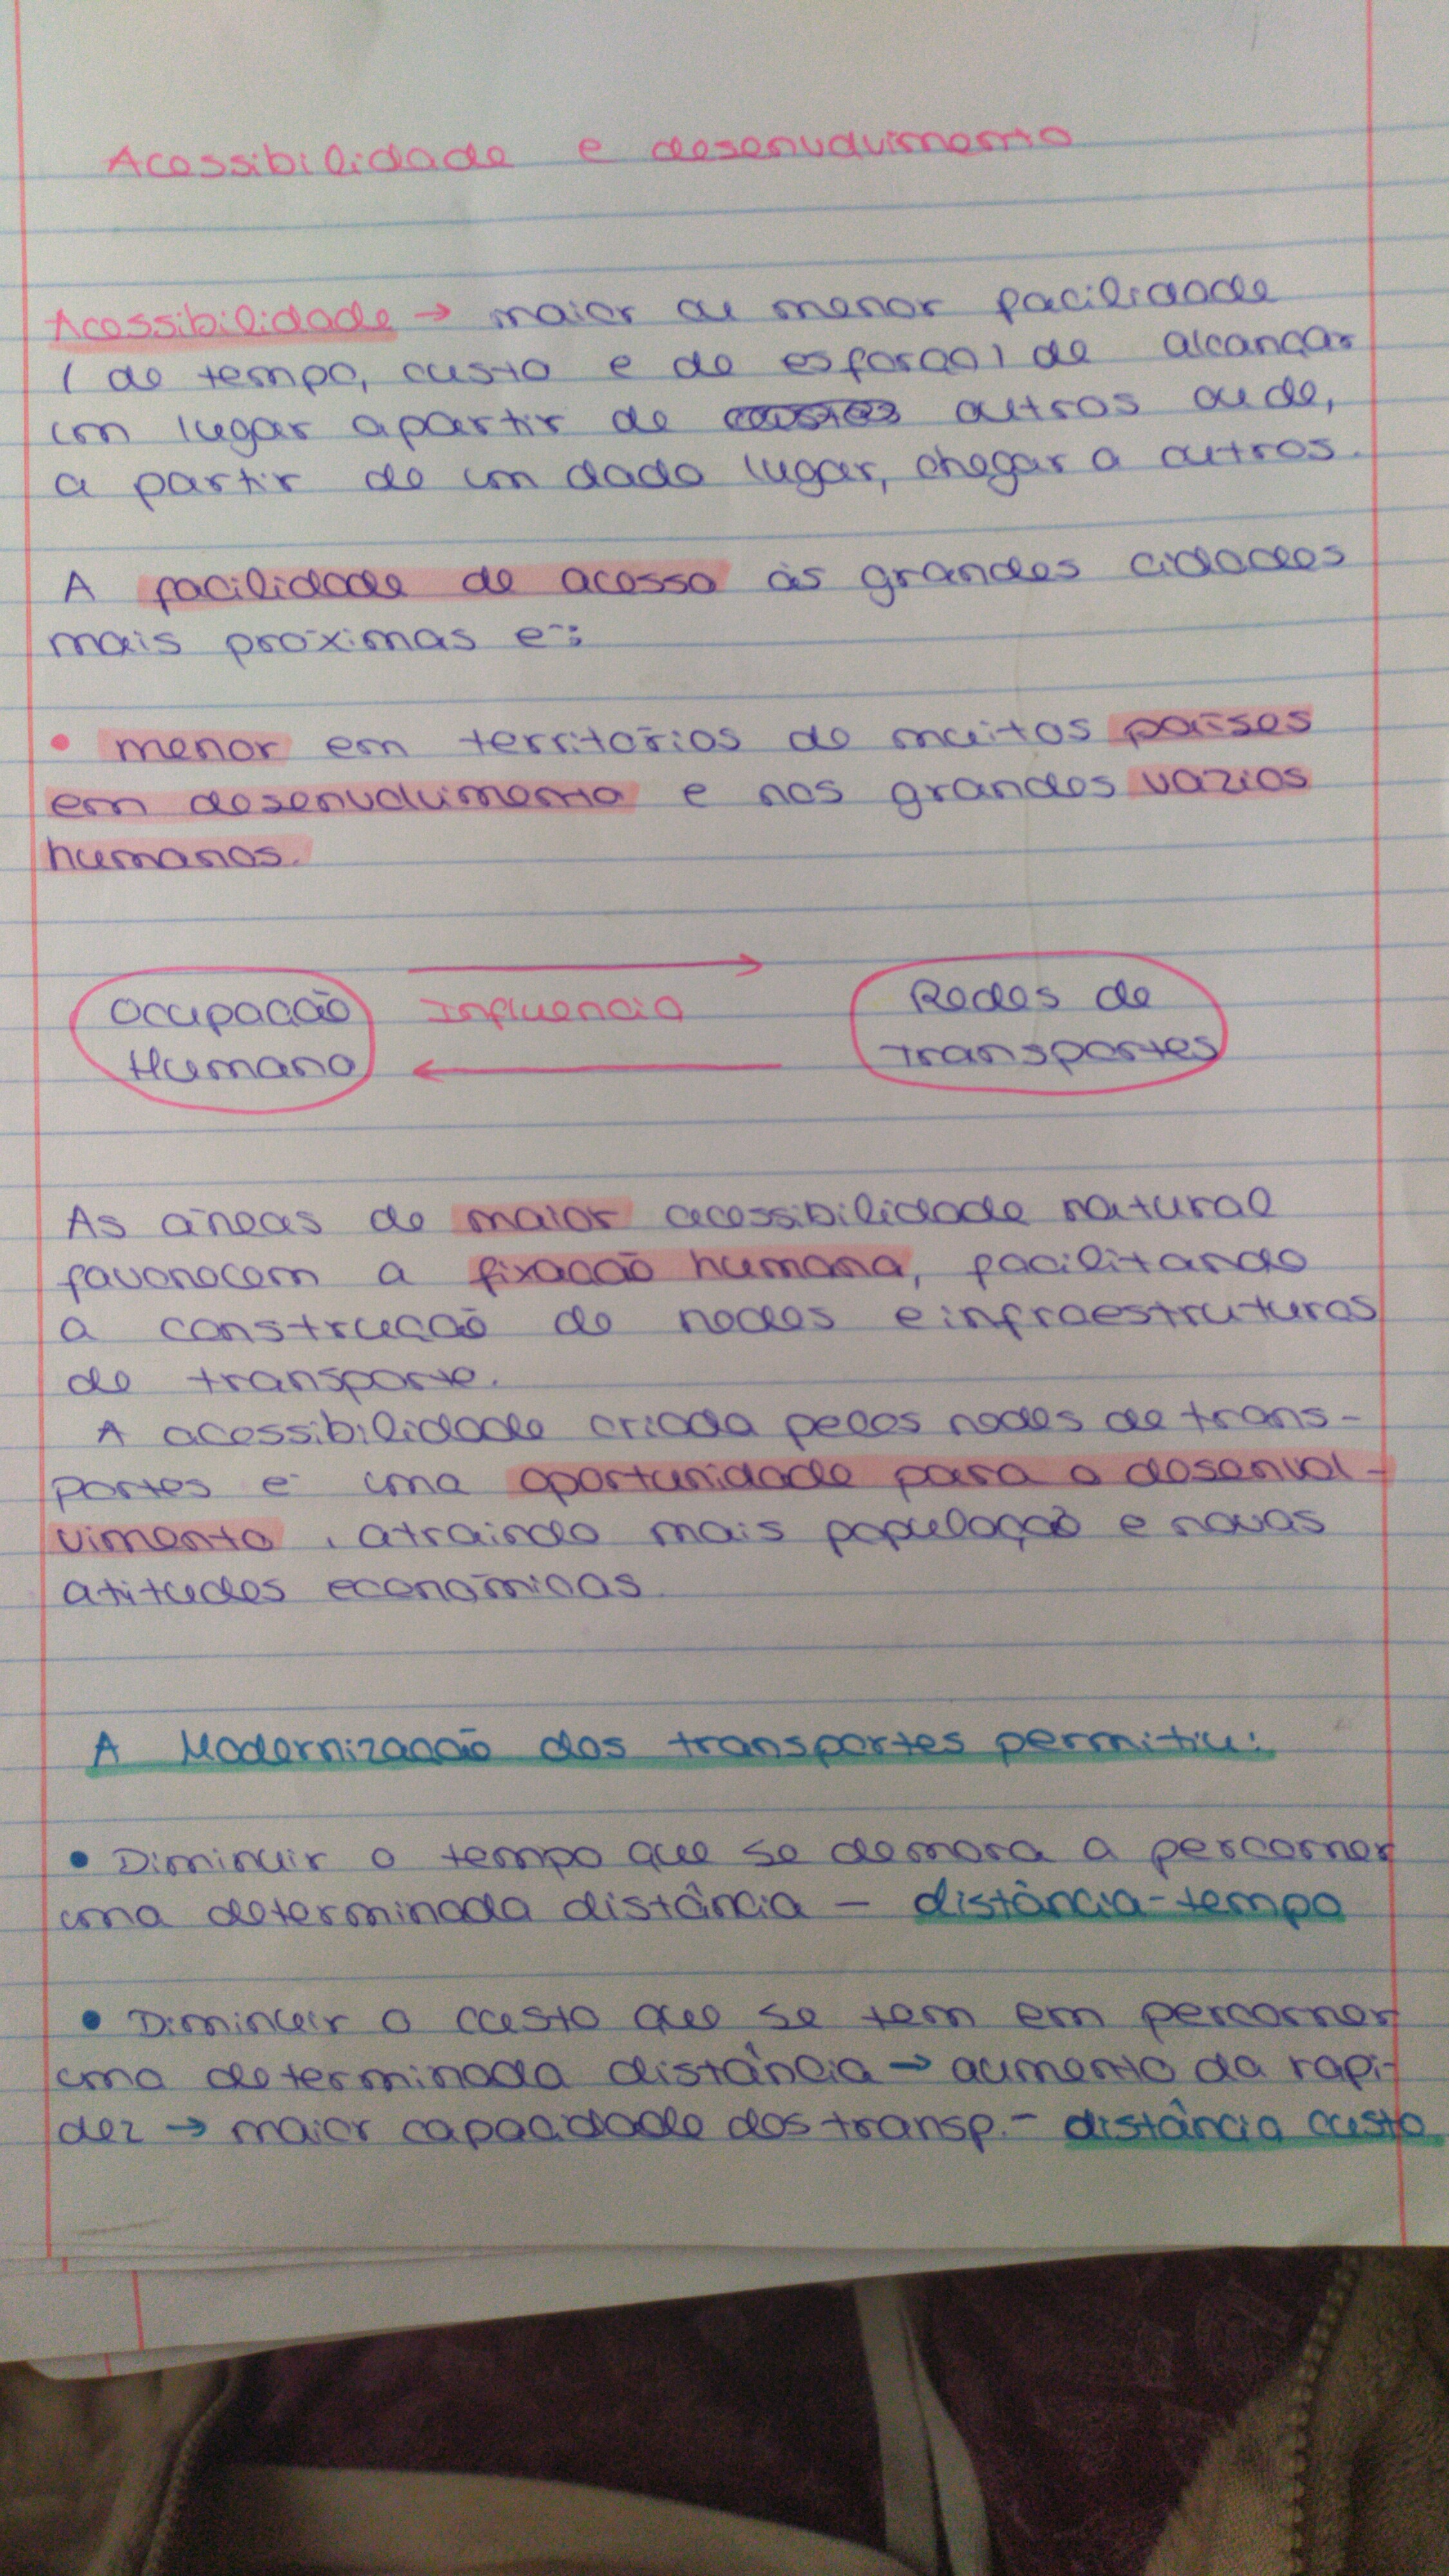 Acessibilidade e desenvolvimento
Acessibilidade → maior ou menor facilidade
( de tempo, custo e de esforço) de alcançar
um lugar apartir de outros ou de,
a partir de um dado lugar, chegar a outros.
A facilidade de acesso às grandes cidades
mais próximas é:
• menor em territórios de muitos países
em desenvolvimento e nos grandes vazios
humanos.
Ocupação Influencia Redes de
Humana transportes
As áreas de maior acessibilidade natural
favorecem a fixação humana, facilitando
a construção de redes e infraestruturas
de transporte.
A acessibilidade criada pelas redes de trans-
portes é uma oportunidade para o desenvol-
vimento, atraindo mais população e novas
atitudes económicas.
A Modernização dos transportes permitiu:
• Diminuir o tempo que se demora a percorrer
uma determinada distância - distância-tempo
• Diminuir o custo que se tem em percorrer
uma determinada distância → aumento da rapi-
dez → maior capacidade dos transp. - distância custo